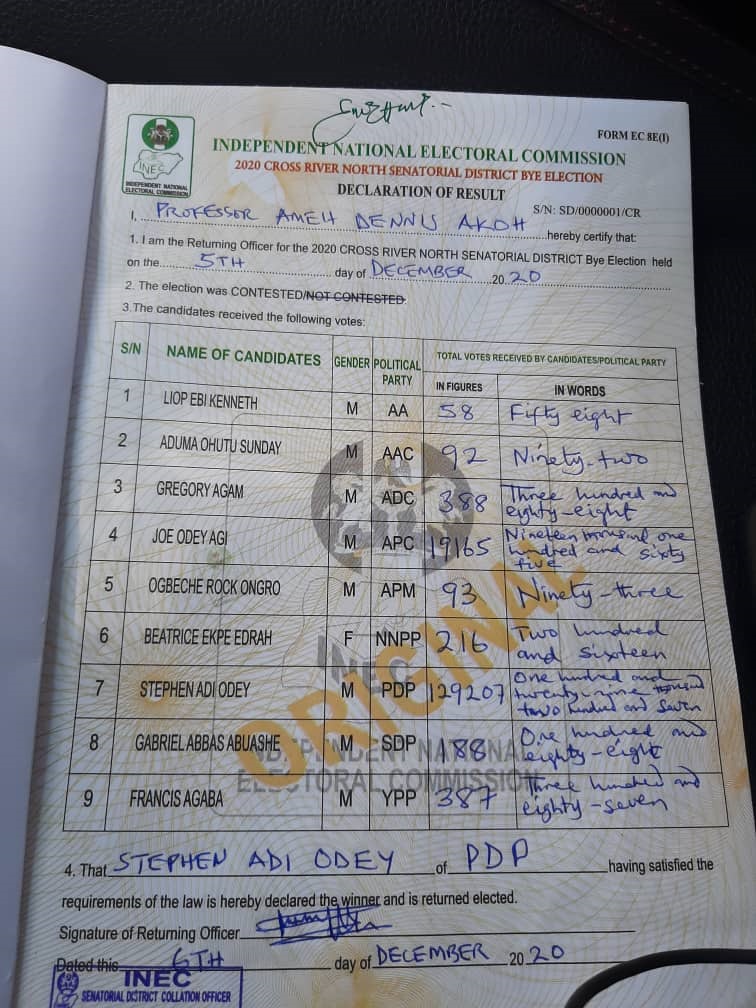 FORM EC 8E(I)
INEC
INDEPENDENT NATIONAL
ELECTORAL COMMISSION
INDEPENDENT NATIONAL ELECTORAL COMMISSION
2020 CROSS RIVER NORTH SENATORIAL DISTRICT BYE ELECTION
DECLARATION OF RESULT
S/N: SD/0000001/CR
I, PROFESSOR AMEH DENNIS AKOH hereby certify that:
1. I am the Returning Officer for the 2020 CROSS RIVER NORTH SENATORIAL DISTRICT Bye Election held
on the 5TH day of DECEMBER 2020
2. The election was CONTESTED/NOT CONTESTED.
3.The candidates received the following votes:
S/N NAME OF CANDIDATES GENDER POLITICAL PARTY TOTAL VOTES RECEIVED BY CANDIDATES/POLITICAL PARTY
IN FIGURES IN WORDS
1 LIOP EBI KENNETH M AA 58 Fifty eight
2 ADUMA OHUTU SUNDAY M AAC 92 Ninety-two
3 GREGORY AGAM M ADC 388 Three hundred and eighty-eight
4 JOE ODEY AGI M APC 19165 Nineteen thousand one hundred and sixty five
5 OGBECHE ROCK ONGRO M APM 93 Ninety-three
6 BEATRICE EKPE EDRAH F NNPP 216 Two hundred and sixteen
7 STEPHEN ADI ODEY M PDP 129207 One hundred and twenty-nine thousand two hundred and seven
8 GABRIEL ABBAS ABUASHE M SDP 188 One hundred and eighty-eight
9 FRANCIS AGABA M YPP 387 Three hundred and eighty-seven
INEC
ORIGINAL
INDEPENDENT NATIONAL
ELECTORAL COMMISSION
4. That STEPHEN ADI ODEY of PDP having satisfied the
requirements of the law is hereby declared the winner and is returned elected.
Signature of Returning Officer
Dated this 6TH day of DECEMBER 2020
INEC
SENATORIAL DISTRICT COLLATION OFFICER